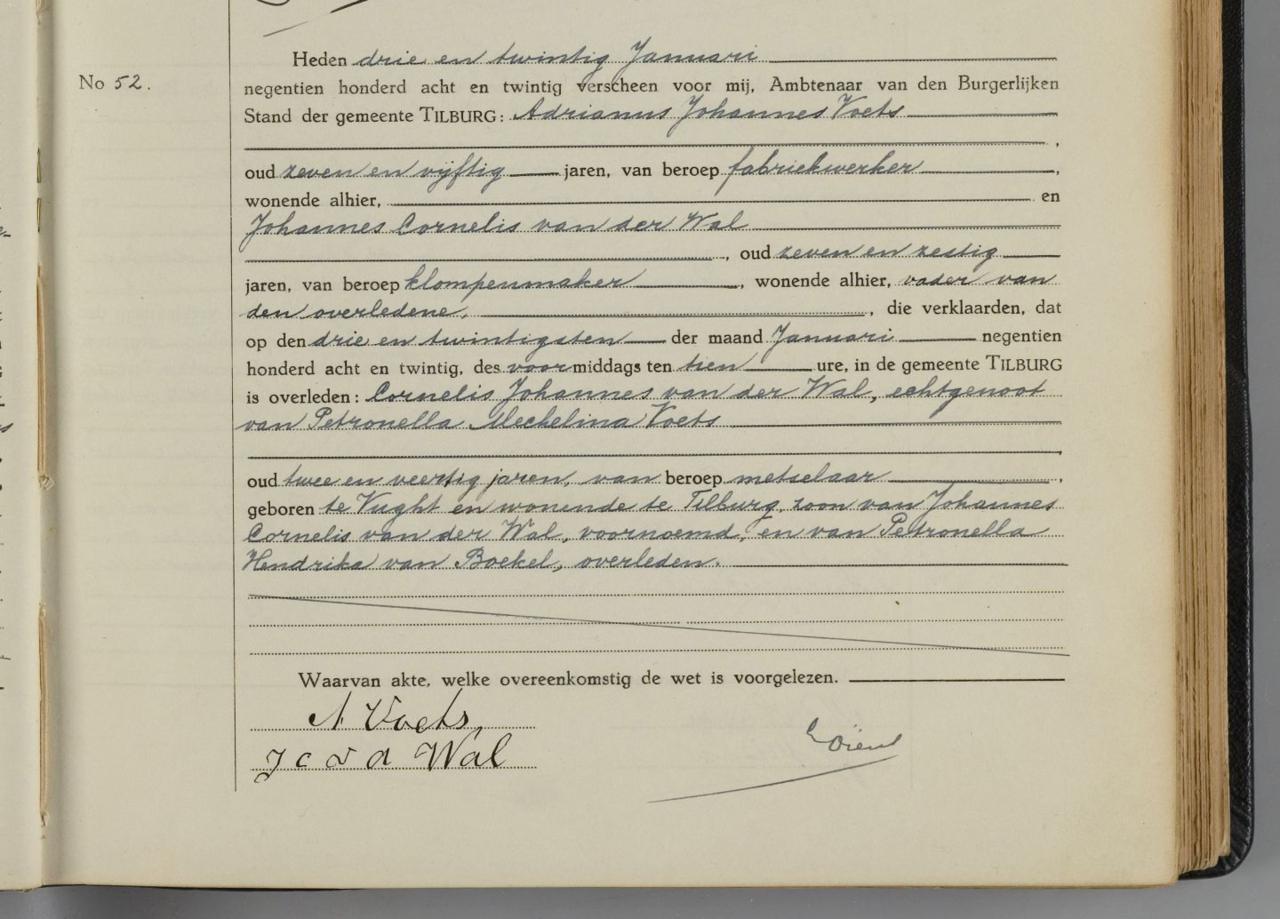 Heden drie en twintig Januari
No 52.
negentien honderd acht en twintig verscheen voor mij, Ambtenaar van den Burgerlijken
Stand der gemeente TILBURG: Adrianus Johannes Voets
,
oud zeven en vijftig jaren, van beroep fabriekwerker,
wonende alhier, en
Johannes Cornelis van der Wal
, oud zeven en zestig
jaren, van beroep klompenmaker, wonende alhier, vader van
den overledene, , die verklaarden, dat
op den drie en twintigsten der maand Januari negentien
honderd acht en twintig, des voormiddags ten tien ure, in de gemeente TILBURG
is overleden: Cornelis Johannes van der Wal, echtgenoot
van Petronella Mechelina Voets
,
oud twee en veertig jaren, van beroep metselaar,
geboren te Vught en wonende te Tilburg, zoon van Johannes
Cornelis van der Wal, voornoemd, en van Petronella
Hendrika van Boekel, overleden.
Waarvan akte, welke overeenkomstig de wet is voorgelezen.
A Voets,
J c v d Wal